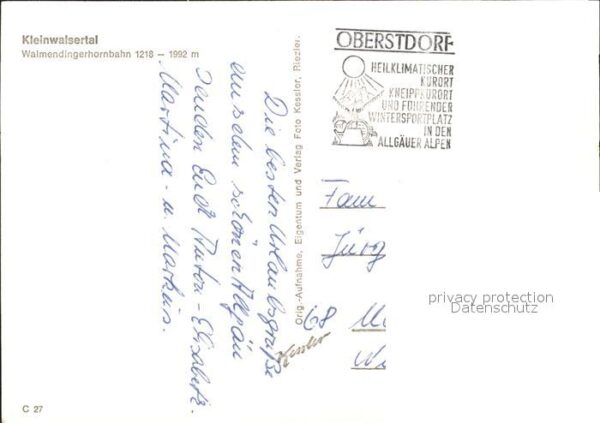 Kleinwalsertal
Walmendingerhornbahn 1218 — 1992 m
Die besten Urlaubsgrüße
aus dem schönen Allgäu
senden Euch Anton - Elisabeth
Martina - u. Markus.
Orig.-Aufnahme, Eigentum und Verlag Foto Kessler, Riezler.
OBERSTDORF
HEILKLIMATISCHER
KURORT
KNEIPPKURORT
UND FÜHRENDER
WINTERSPORTPLATZ
IN DEN
ALLGÄUER ALPEN
Fam
Jürg
68
Kessler
privacy protection
Datenschutz
C 27